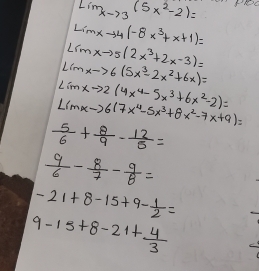 Lim x->3 (5x²-2)=
Lim x->4 (-8x³+x+1)=
Lim x->5 (2x³+2x-3)=
Lim x->6 (5x³-2x²+6x)=
Lim x->2 (4x⁴-5x³+6x²-2)=
Lim x->6 (7x⁴-5x³+8x²-7x+9)=
5/6 + 8/9 - 12/5 =
9/6 - 8/7 - 9/8 =
-21+8-15+9-1/2=
9-15+8-21+4/3